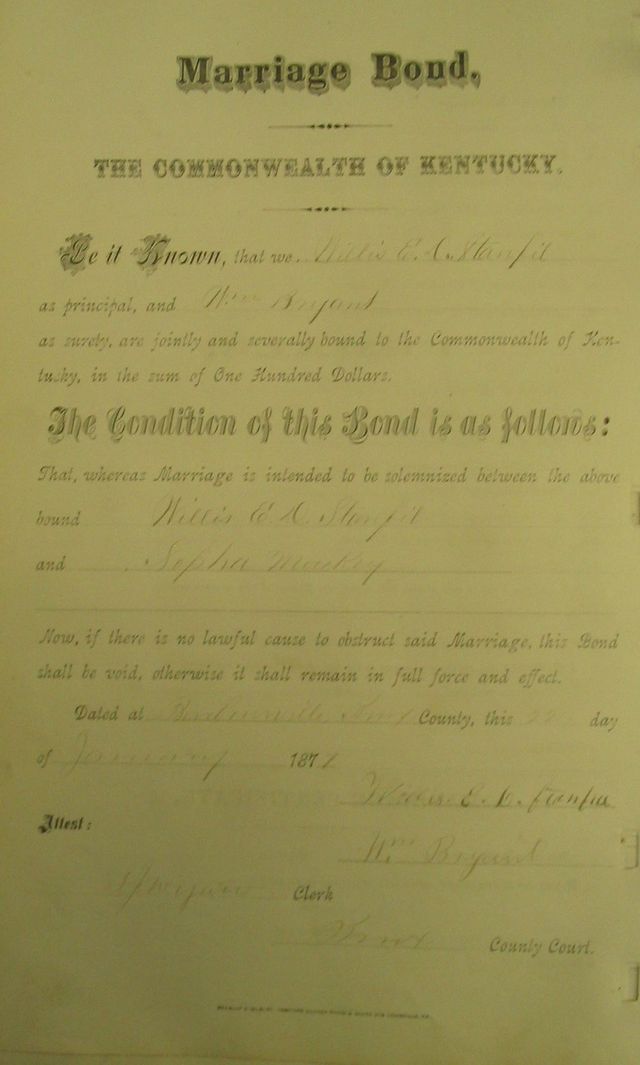 Marriage Bond,
THE COMMONWEALTH OF KENTUCKY.
Be it Known, that we Willis E. A. Stanfil
as principal, and Wm Bryant
as surety, are jointly and severally bound to the Commonwealth of Ken-
tucky, in the sum of One Hundred Dollars.
The Condition of this Bond is as follows:
That, whereas Marriage is intended to be solemnized between the above
bound Willis E. A. Stanfil
and Sopha
Now, if there is no lawful cause to obstruct said Marriage, this Bond
shall be void, otherwise it shall remain in full force and effect.
Dated at Knox County, this 22 day
of January 187
E. Stanfil
Attest:
Wm Bryant
Clerk
Knox County Court.